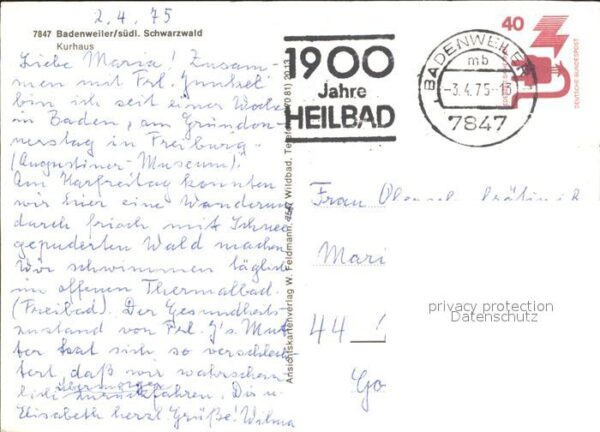 2.4.75
7847 Badenweiler/südl. Schwarzwald
Kurhaus
Liebe Maria! Zusam-
men mit Frl. Gunkel
bin ich seit einer Woche
in Baden, am Gründon-
nerstag in Freiburg.
(Augustiner-Museum).
Am Karfreitag konnten
wir hier eine Wanderung
durch frisch mit Schnee
gepuderten Wald machen.
Wir schwimmen täglich
im offenen Thermalbad.
(Freibad). Der Gesundheits-
zustand von Frl. G's Mut-
ter hat sich so verschlech-
tert, daß wir wahrschein-
lich übermorgen zurückfahren. Die u.
Elisabeth herzl. Grüße! Wilma
Ansichtskartenverlag W. Feldmann, 7547 Wildbad, Telefon (070 81) 2013
1900
Jahre
HEILBAD
BADENWEILER
mb
-3.4.75-13
7847
40
DEUTSCHE BUNDESPOST
Frau
Mari
44
Go
privacy protection
Datenschutz